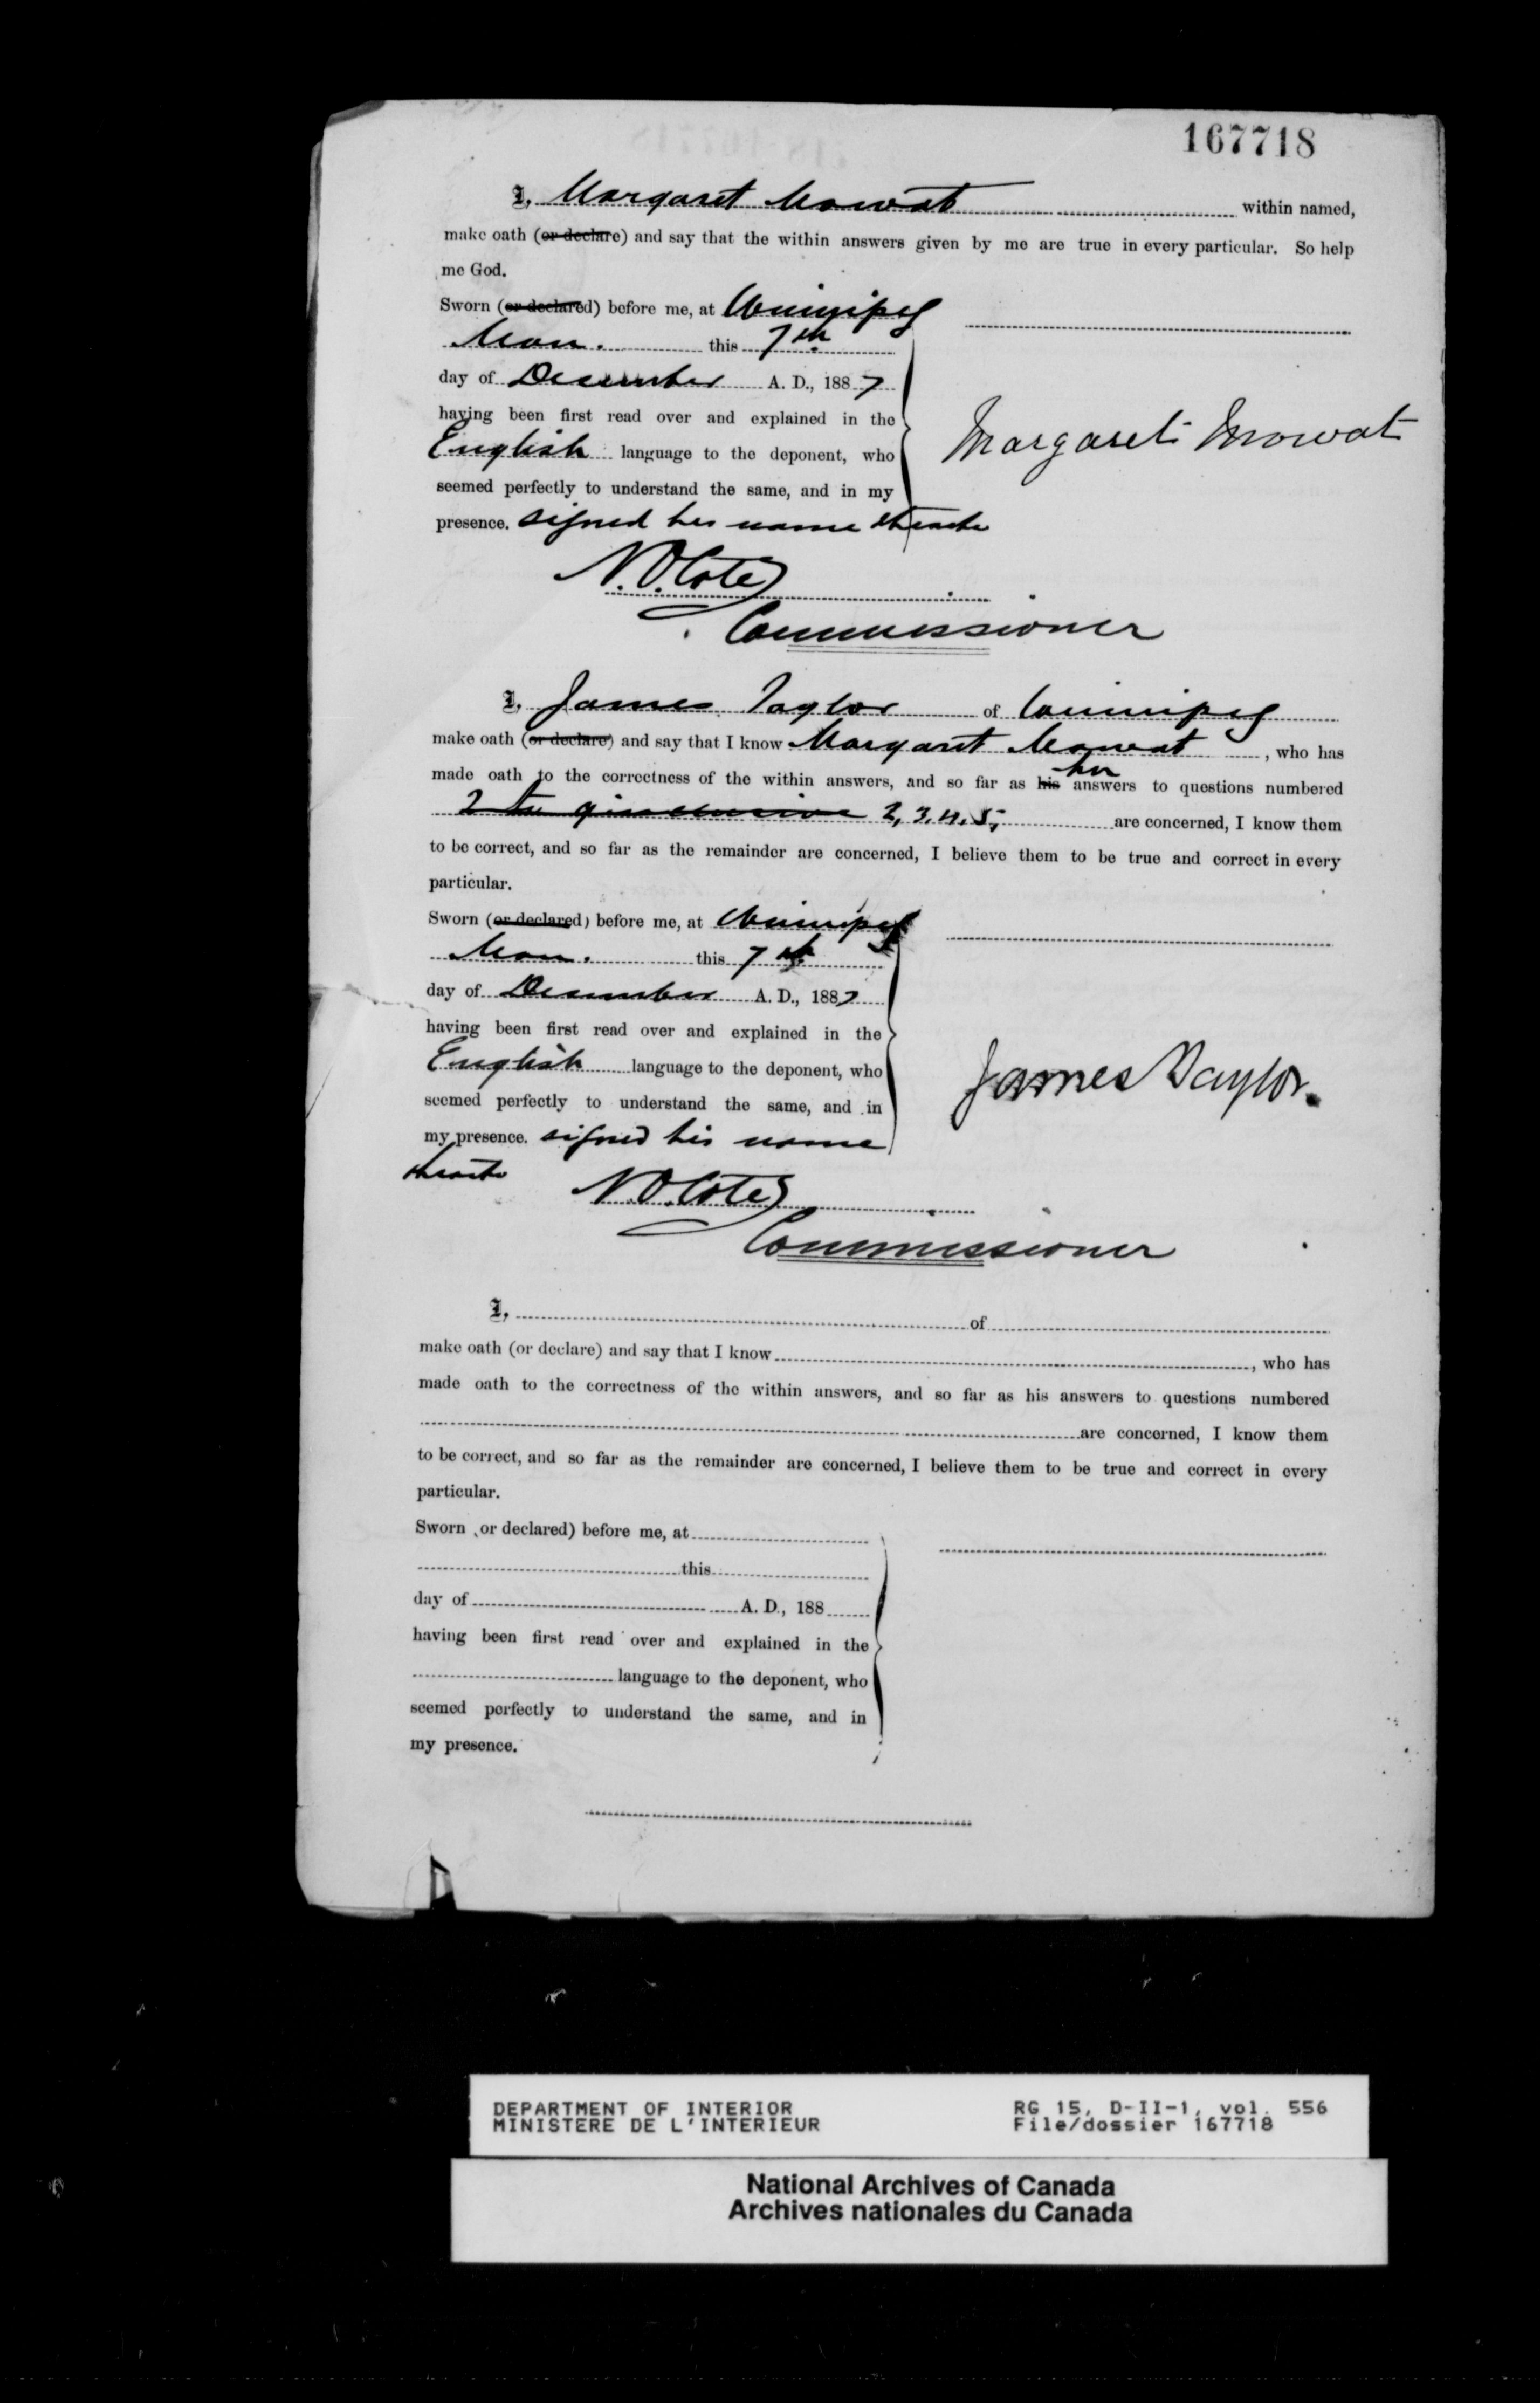 167718
I, Margaret Mowat within named,
make oath (or declare) and say that the within answers given by me are true in every particular. So help
me God.
Sworn (or declared) before me, at Winnipeg
Man. this 7th
day of December A. D., 1887
having been first read over and explained in the
English language to the deponent, who
seemed perfectly to understand the same, and in my
presence. signed her name thereto
Margaret Mowat
N.O. Coté
Commissioner
I, James Taylor of Winnipeg
make oath (or declare) and say that I know Margaret Mowat, who has
made oath to the correctness of the within answers, and so far as his her answers to questions numbered
2 to 9 inclusive 2, 3, 4, 5, are concerned, I know them
to be correct, and so far as the remainder are concerned, I believe them to be true and correct in every
particular.
Sworn (or declared) before me, at Winnipeg
Man. this 7th
day of December A. D., 1887
having been first read over and explained in the
English language to the deponent, who
seemed perfectly to understand the same, and in
my presence. signed his name
thereto
James Taylor.
N.O. Coté
Commissioner
I, of
make oath (or declare) and say that I know , who has
made oath to the correctness of the within answers, and so far as his answers to questions numbered
are concerned, I know them
to be correct, and so far as the remainder are concerned, I believe them to be true and correct in every
particular.
Sworn (or declared) before me, at
this
day of A. D., 188
having been first read over and explained in the
language to the deponent, who
seemed perfectly to understand the same, and in
my presence.
DEPARTMENT OF INTERIOR RG 15, D-II-1, vol. 556
MINISTERE DE L'INTERIEUR File/dossier 167718
National Archives of Canada
Archives nationales du Canada